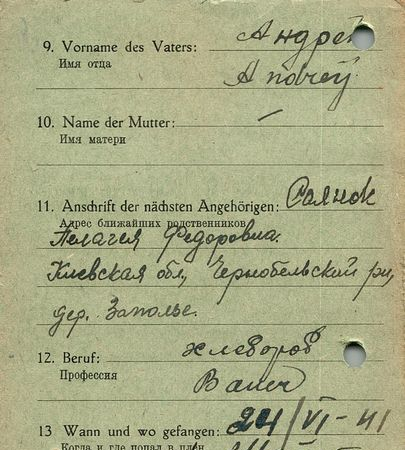 9. Vorname des Vaters: Андрей
Имя отца
Andrey
10. Name der Mutter: —
Имя матери
11. Anschrift der nächsten Angehörigen: Саянок
Адрес ближайших родственников
Пелагея Федоровна.
Киевская обл, Чернобельский рн,
дер. Заполье.
12. Beruf: хлебороб
Профессия
Bauer
13 Wann und wo gefangen: 24/VI-41
Когда и где попал в плен